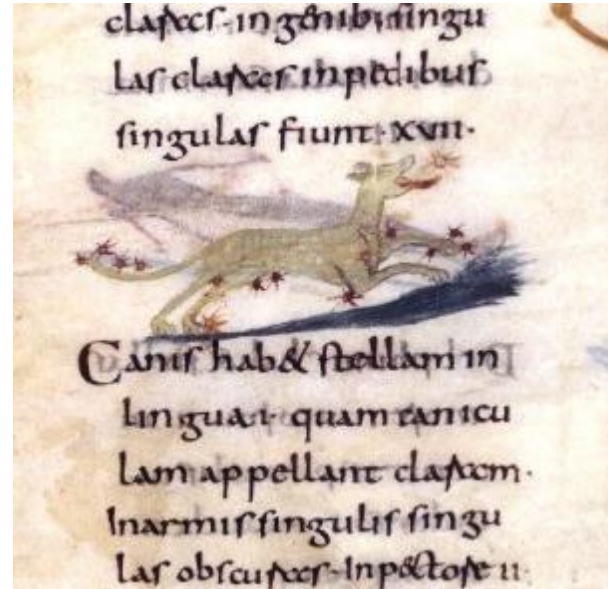 claras· in genib; singu
las claras in pedibus
singulas fiunt· xvii·
Canis hab& stellam in
lingua·i· quam canicu
lam appellant claram·
In armis singulis singu
las obscuras· In pectore ii·